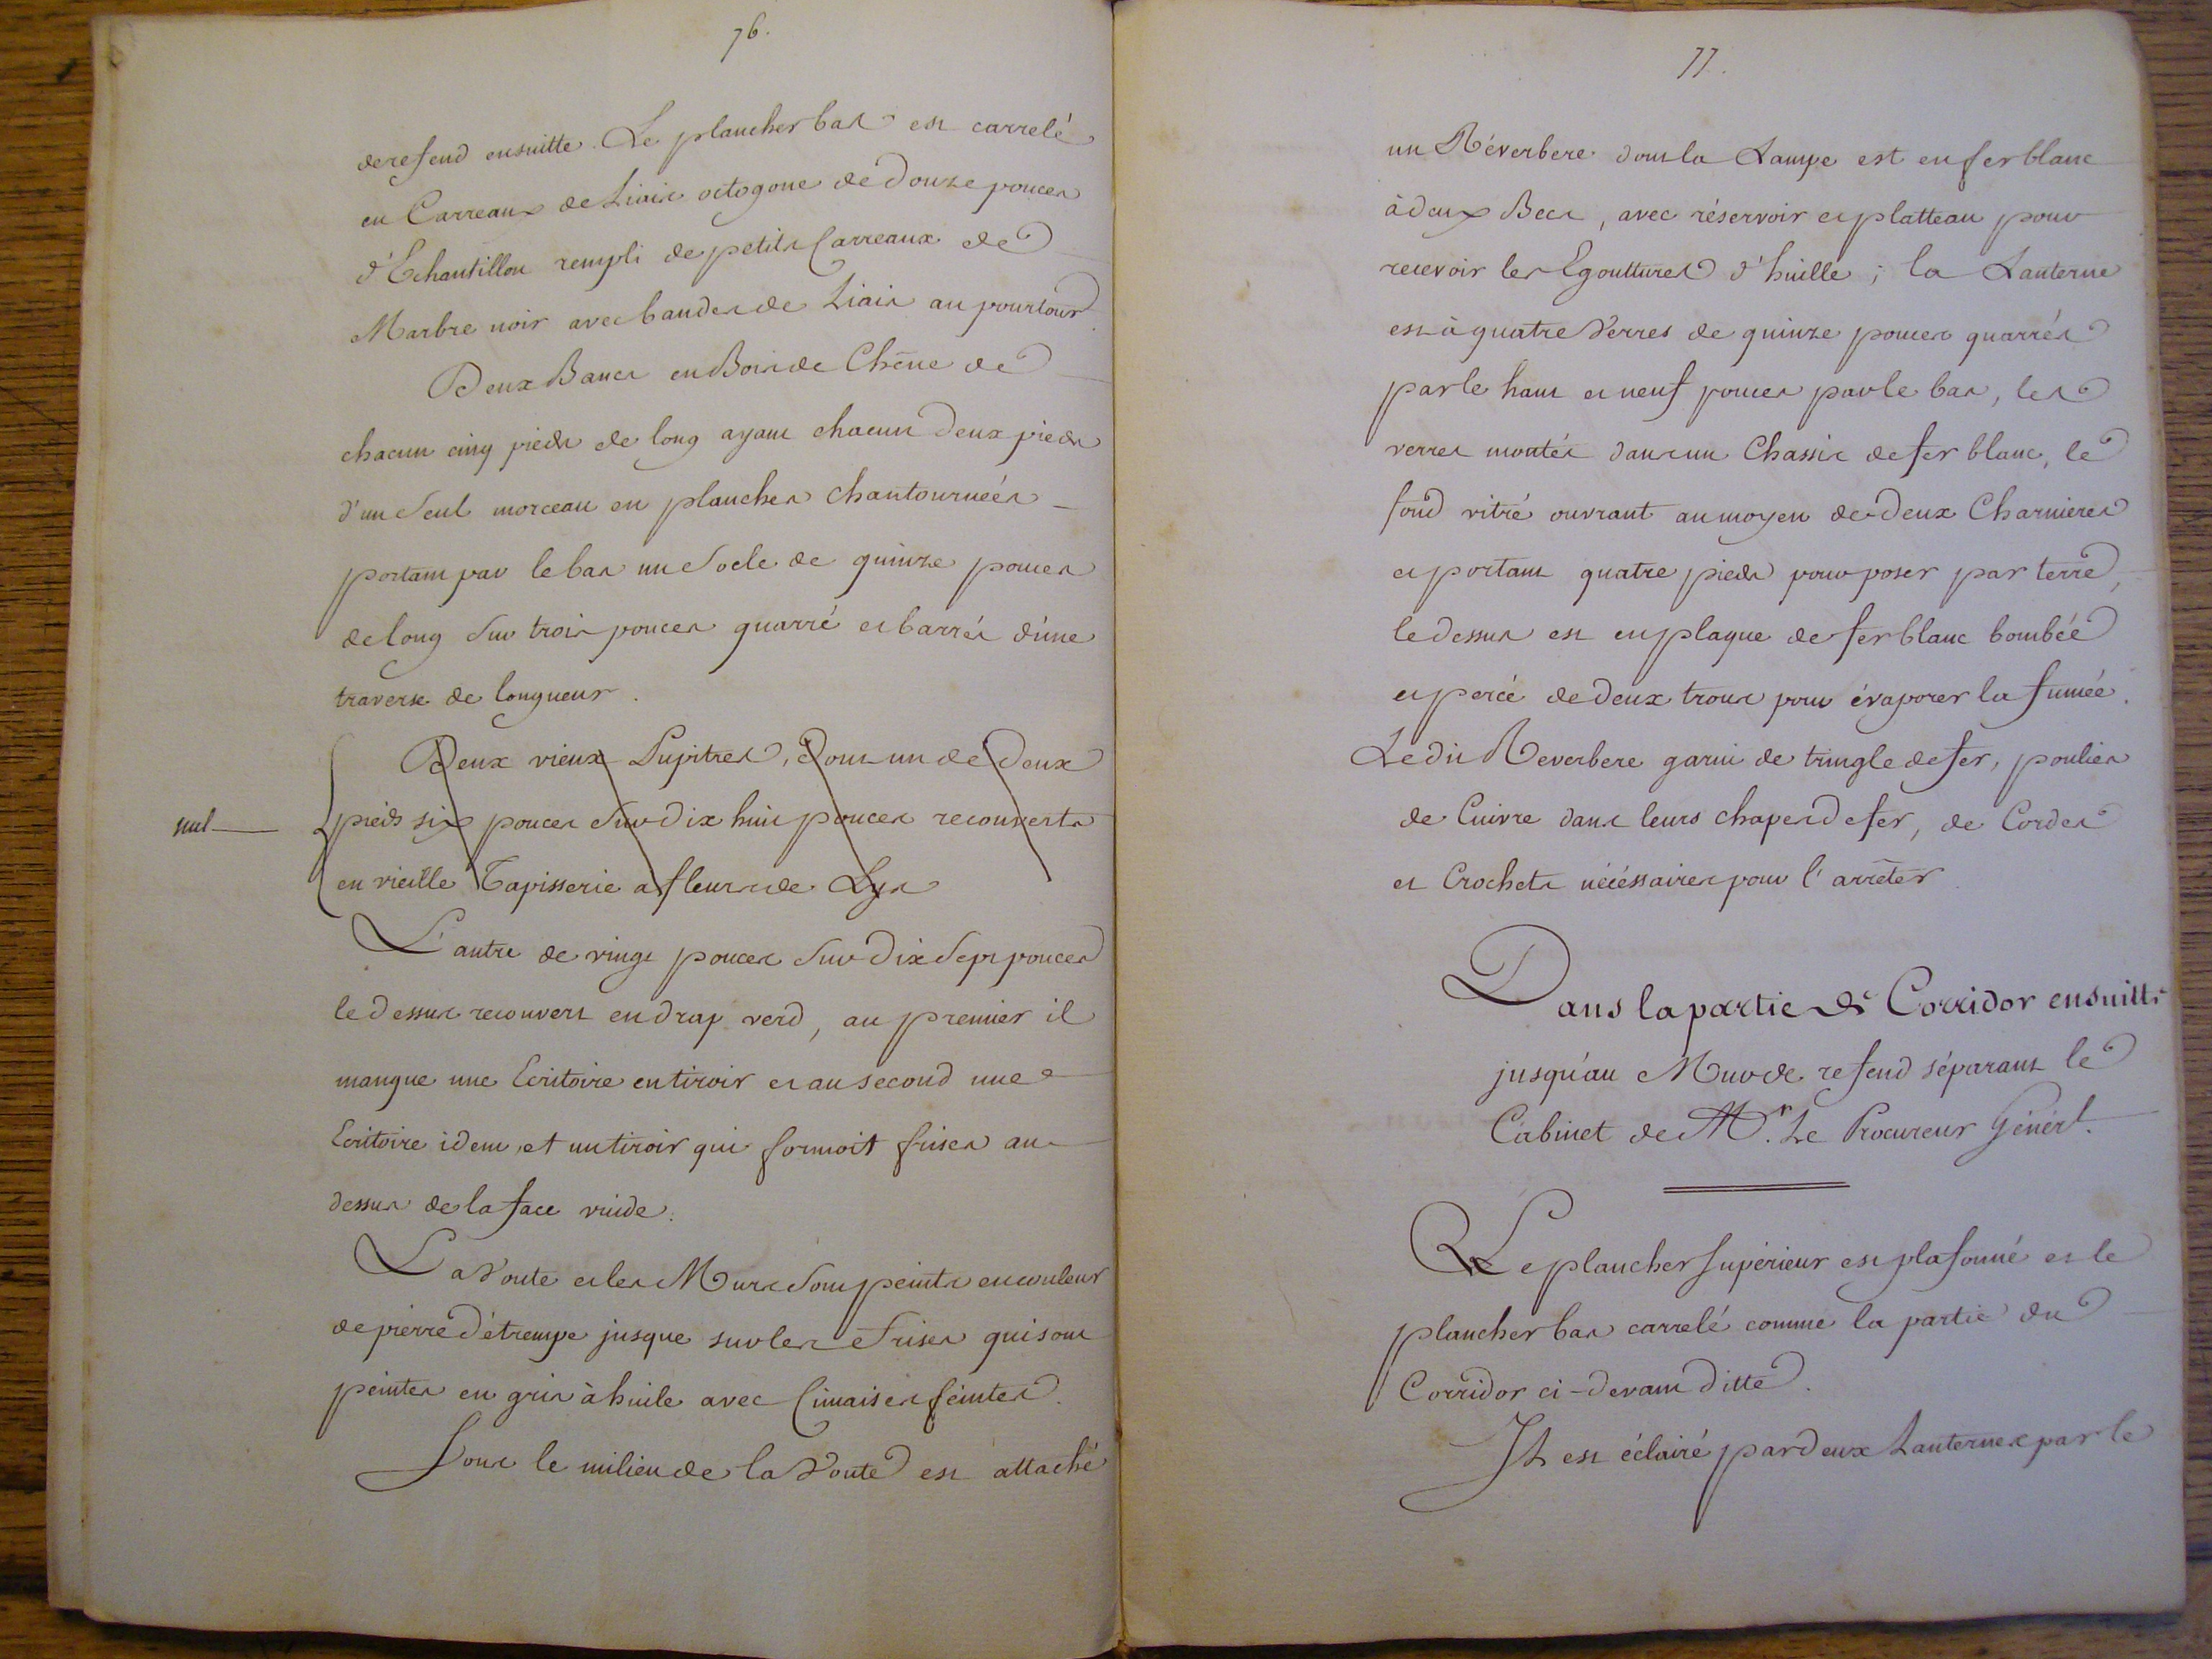 76.
de refend ensuitte. Le plancher bas est carrelé
en Carreaux de Liais octogone de douze pouces
d'Echantillon rempli de petits Carreaux de
Marbre noir avec bandes de Liais au pourtour.
Deux Bancs en Bois de Chêne de
chacun cinq pieds de long ayant chacun deux pieds
d'un seul morceau en planches chantournées
portant par le bas un socle de quinze pouces
de long sur trois pouces quarré et barrés d'une
traverse de longueur.
Deux vieux Pupitres, dont un de deux
nul
pieds six pouces sur dix huit pouces recouverts
en vieille Tapisserie a fleurs de Lys
L'autre de vingt pouces sur dix sept pouces
le dessus recouvert en drap verd, au premier il
manque une Ecritoire en tiroir et au second une
Ecritoire idem, et un tiroir qui formoit frises au
dessus de la face vuide.
La Voute et les Murs sont peints en couleur
de pierre détrempe jusque sur les frises qui sont
peintes en gris à huile avec Cimaises feintes.
Sous le milieu de la Voute est attaché
77.
un Réverbere dont la Lampe est en fer blanc
à deux Becs, avec réservoir et platteau pour
recevoir les Egouttures d'huille; la Lanterne
est à quatre Verres de quinze pouces quarrés
par le haut et neuf pouces par le bas, les
verres montés dans un Chassis de fer blanc, le
fond vitré ouvrant au moyen de deux Charnieres
et portant quatre pieds pour poser par terre,
le dessus est en plaque de fer blanc bombée
et percé de deux trous pour évaporer la fumée.
Le dit Reverbere garni de tringle de fer, poulies
de Cuivre dans leurs chapes de fer, de Cordes
et Crochets nécéssaires pour l'arrêter
Dans la partie de Corridor ensuitte
jusqu'au Mur de refend séparant le
Cabinet de Mr. Le Procureur Génér.l
Le plancher supérieur est plafonné et le
plancher bas carrelé comme la partie du
Corridor ci-devant ditte.
Il est éclairé par deux Lanternes par le